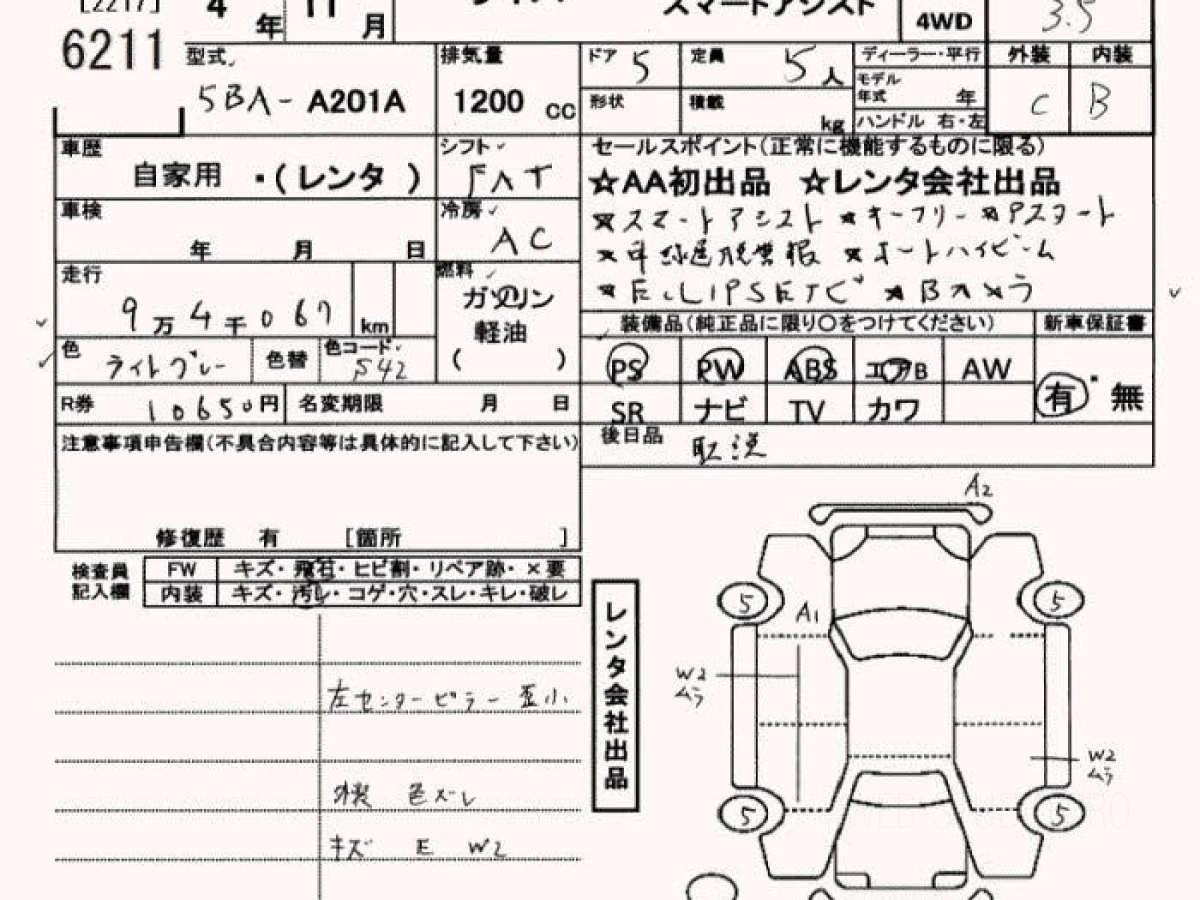 [2217]
4 年 11 月
スマートアシスト
4WD
3.5
6211
型式
5BA- A201A
排気量
1200 cc
ドア 5
定員 5人
ディーラー・平行
モデル
年式 年
ハンドル 右・左
形状
積載
kg
外装
内装
C
B
車歴
自家用 ・(レンタ )
シフト
FAT
車検
年 月 日
冷房
AC
走行
9万4千067
km
燃料
ガソリン
軽油
( )
色
ライトグレー
色替
色コード
S42
R券 10650円
名変期限 月 日
注意事項申告欄(不具合内容等は具体的に記入して下さい)
修復歴 有 [箇所 ]
セールスポイント(正常に機能するものに限る)
☆AA初出品 ☆レンタ会社出品
★スマートアシスト ★キーフリー ★Pスタート
★車線逸脱警報 ★オートハイビーム
★ECLIPSETC ★Bカメラ
装備品(純正品に限り○をつけてください)
新車保証書
PS PW ABS エアB AW
SR ナビ TV カワ
有・無
後日品
取説
検査員
記入欄
FW キズ・飛石・ヒビ割・リペア跡・×要
内装 キズ・汚レ・コゲ・穴・スレ・キレ・破レ
左センターピラー 歪小
外装 色ズレ
キズ E W2
レンタ会社出品
A2
5
5
A1
W2
ムラ
W2
ムラ
5
5